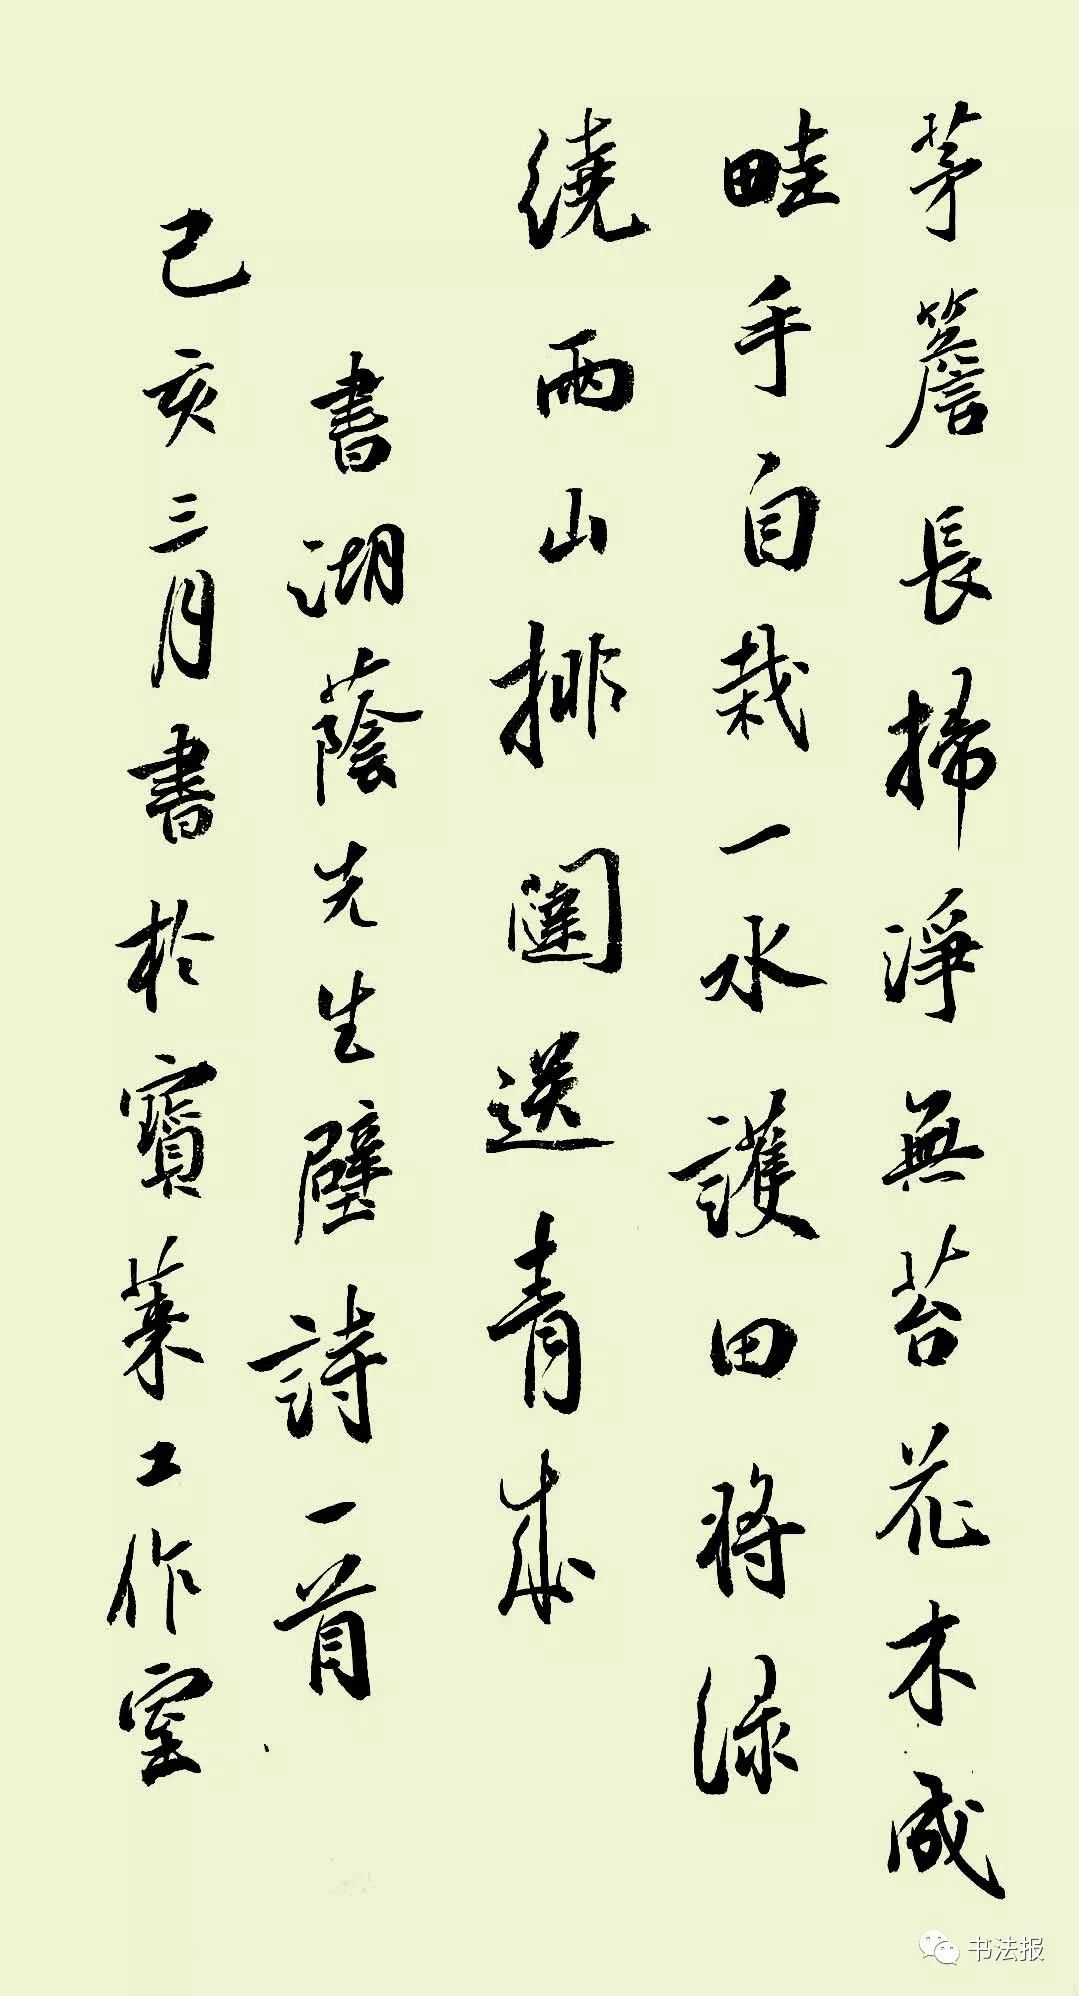 茅簷長掃淨無苔花木成
畦手自栽一水護田將綠
繞兩山排闥送青來
書湖蔭先生壁詩一首
己亥三月書於寶萊工作室
书法报